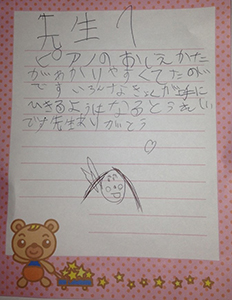 先生へ
ピアノのおしえかた
がわかりやすくてたのしい
です いろんなきょくが上手に
ひけるようになるとうれしい
です先生ありがとう